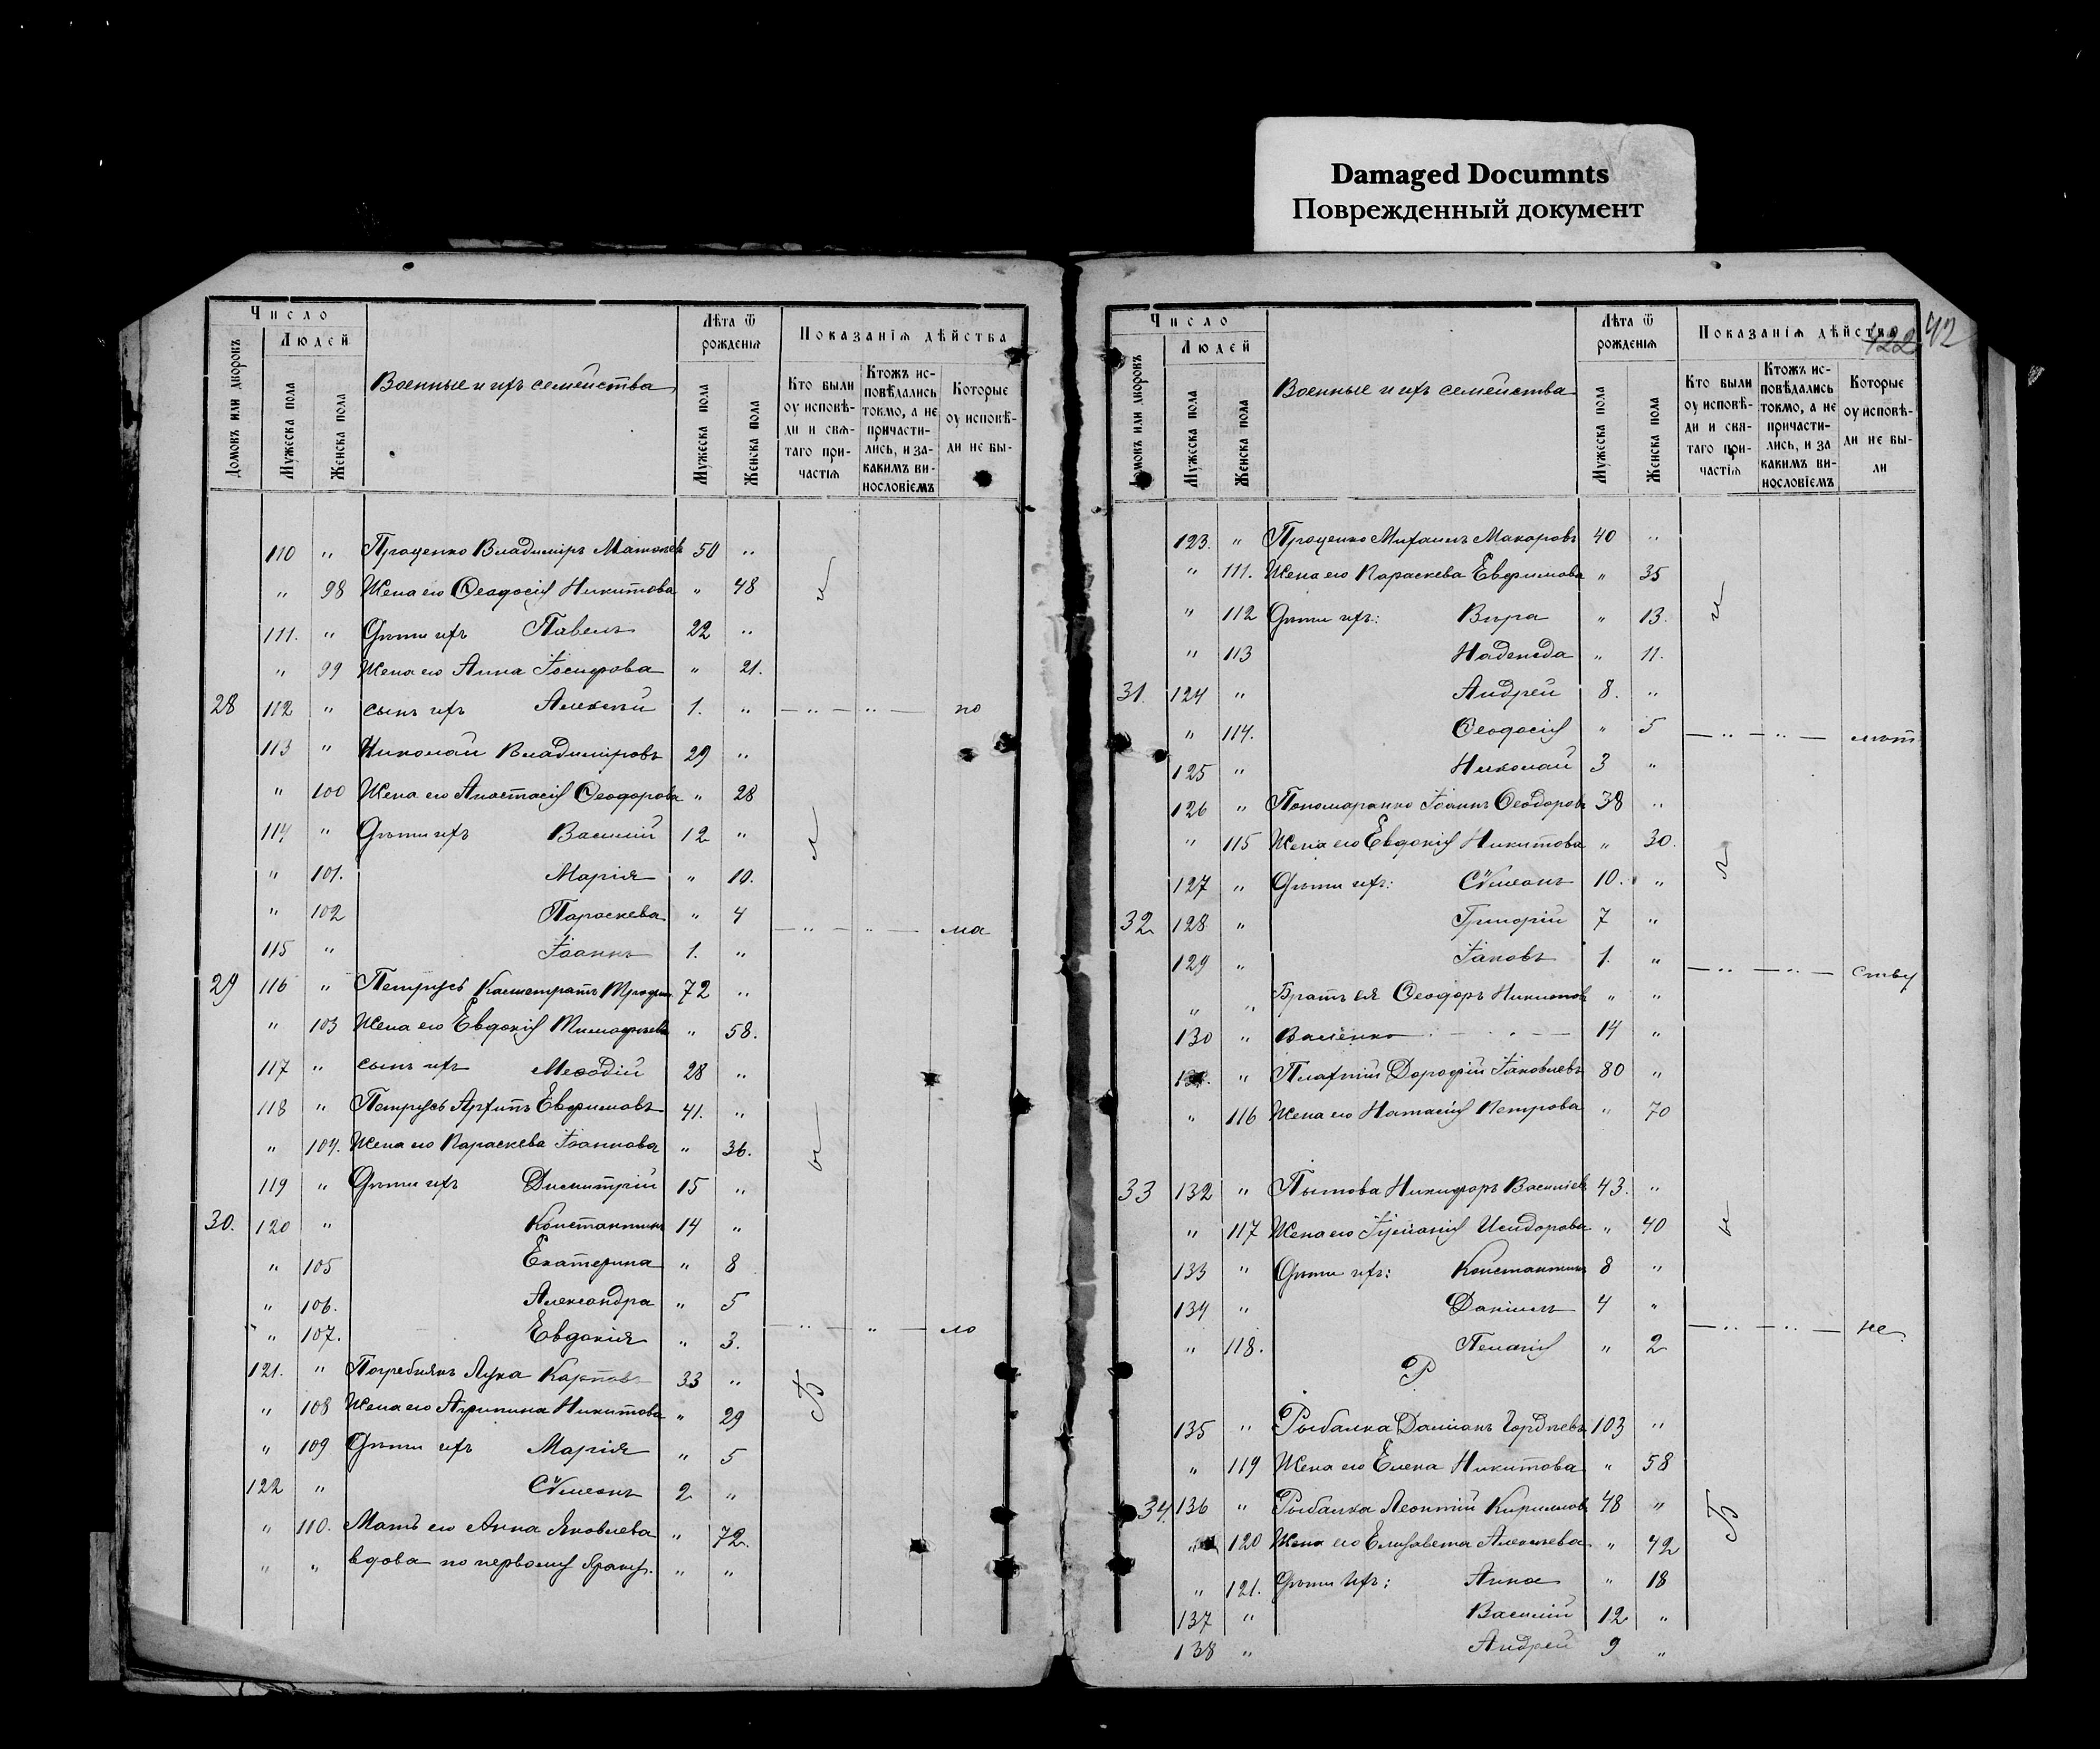 Damaged Documnts
Поврежденный документ
Число
Людей
Домовъ или дворовъ
Мужеска пола
Женска пола
Военные и ихъ семейства
Лѣта ѿ рожденія
Мужеска пола
Женска пола
Показанія дѣйства
Кто были оу исповѣ-
ди и свя-
таго при-
частія
Ктожъ ис-
повѣдались
токмо, а не
причасти-
лись, и за-
какимъ ви-
нословіемъ
Которые
оу исповѣ-
ди не бы-
110 " Проценко Владиміръ 50 "
" 98 Жена его Ѳеодосія Никитова " 48 и
111. " Дѣти ихъ Павелъ 22 "
" 99 Жена его Анна Іосифова " 21.
28 112 " сынъ ихъ Алексѣй 1. " — " — " — по
113 " Николай Владиміровъ 29 "
" 100 Жена его Анастасія Ѳеодорова " 28
114 " Дѣти ихъ Василій 12 " л
" 101. Марія " 10.
" 102 Параскева " 4 — " — " — ма
115 " Іоаннъ 1. "
29 116 " Петрусь 72 "
" 103 Жена его Евдокія Тимофѣева " 58.
117 " сынъ ихъ Меѳодій 28 "
118 " Петрусь Архипъ Евфимовъ 41. "
" 104. Жена его Параскева Іоаннова " 36. ы
119 " Дѣти ихъ Димитрій 15 "
30. 120 " Константинъ 14 "
" 105 Екатерина " 8
" 106. Александра " 5
" 107. Евдокія " 3. — " — " — ло
121. " Погребнякъ Лука Карповъ 33 " Б
" 108 Жена его Агрипина Никитова " 29
" 109 Дѣти ихъ Марія " 5
122 " Сѵмеонъ 2 "
" 110. Мать его Анна Яковлева " 72.
" " вдова по первому браку. " "
Число
Людей
Домовъ или дворовъ
Мужеска пола
Женска пола
Военные и ихъ семейства
Лѣта ѿ рожденія
Мужеска пола
Женска пола
Показанія дѣйства
122 42
Кто были
оу исповѣ-
ди и свя-
таго при-
частія
Ктожъ ис-
повѣдались
токмо, а не
причасти-
лись, и за
какимъ ви-
нословіемъ
Которые
оу исповѣ-
ди не бы-
ли
123. " Проценко Михаилъ Макаровъ 40 "
" 111. Жена его Параскева Евфимова " 35
" 112 Дѣти ихъ: Вѣра " 13. и
" 113 Надежда " 11.
31. 124 " Андрей 8. "
" 114. Ѳеодосія " 5 — " — " — лѣт
125 " Николай 3 "
126 " Пономаренко Іоаннъ Ѳеодоровъ 38 "
" 115 Жена его Евдокія Никитова " 30. л
127 " Дѣти ихъ: Сѵмеонъ 10. "
32 128 " Григорій 7 "
129 " Іаковъ 1. " — " — " — ству
" " Братъ ея Ѳеодоръ " "
130 " 14 "
131. " Дорофій Іаковлевъ 80 "
" 116 Жена его Наталія Петрова " 70
33 132 " Никифоръ Василіевъ 43. "
" 117 Жена его Іуліанія Исидорова " 40 ы
133 " Дѣти ихъ: Константинъ 8 "
134 " Даніилъ 4 "
" 118. Пелагія " 2 — " — " — не
Р
135 " Рыбалка Даміанъ Гордѣевъ 103 "
" 119 Жена его Елена Никитова " 58
34. 136 " Рыбалка Леонтій Кириловъ 48 " Б
" 120 Жена его Елисавета Алексѣева " 42
" 121. Дѣти ихъ: Анна " 18
137 " Василій 12 "
138 " Андрей 9 "